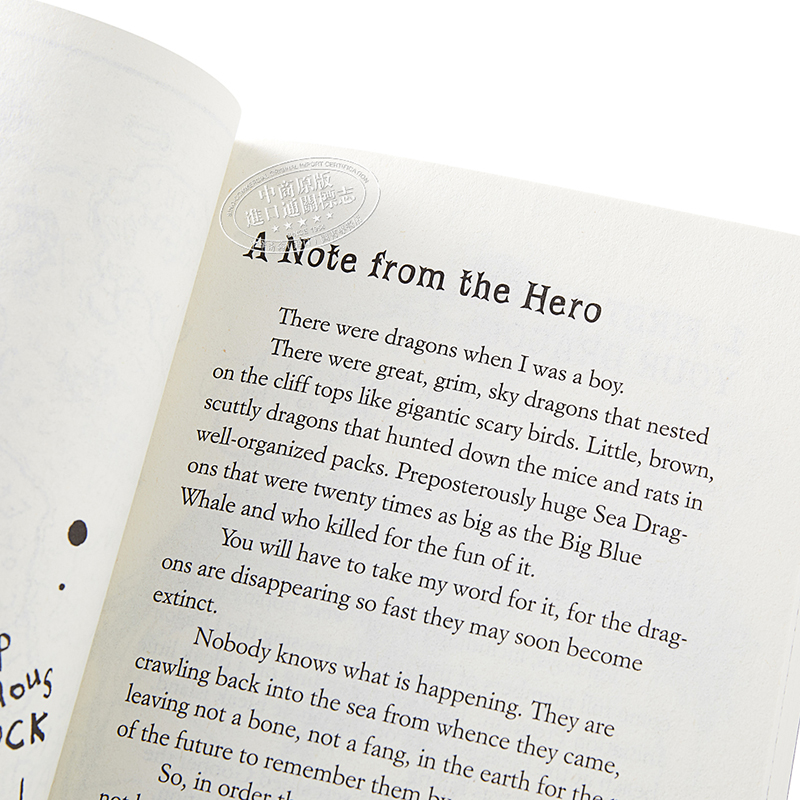 中商原版
進口通關標志
A Note from the Hero
There were dragons when I was a boy.
There were great, grim, sky dragons that nested
on the cliff tops like gigantic scary birds. Little, brown,
scuttly dragons that hunted down the mice and rats in
well-organized packs. Preposterously huge Sea Drag-
ons that were twenty times as big as the Big Blue
Whale and who killed for the fun of it.
You will have to take my word for it, for the drag-
ons are disappearing so fast they may soon become
extinct.
Nobody knows what is happening. They are
crawling back into the sea from whence they came,
leaving not a bone, not a fang, in the earth for the
of the future to remember them by
So, in order